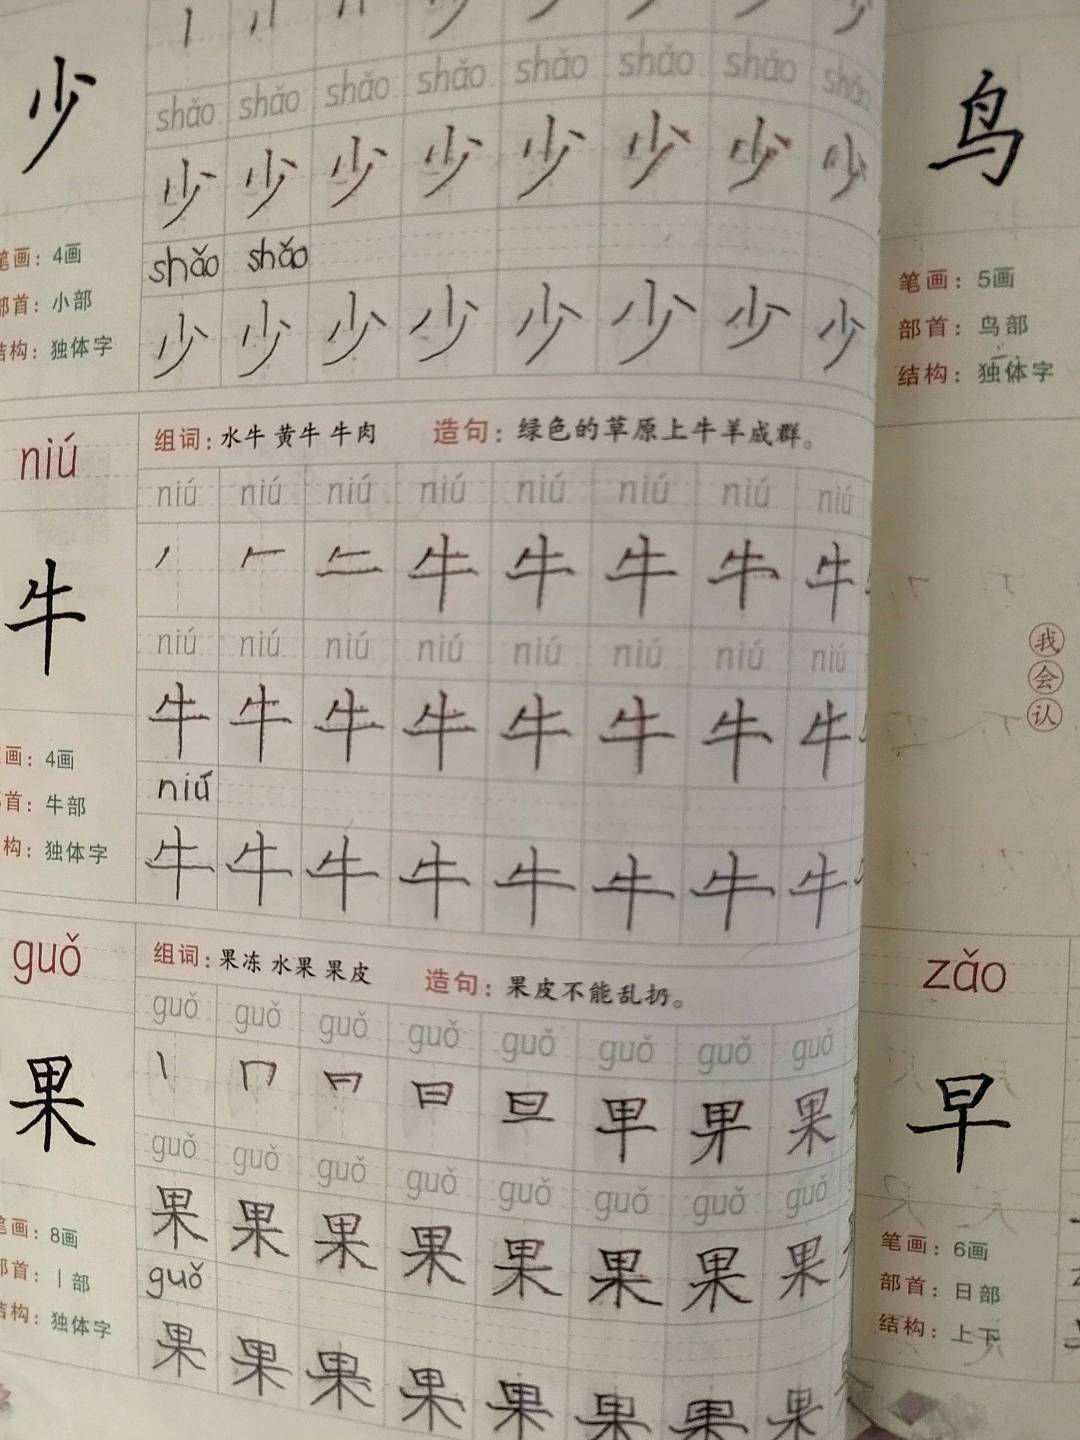 shǎo shǎo shǎo shǎo shǎo shǎo shǎo shǎo
少
少 少 少 少 少 少 少 少
shǎo shǎo
少 少 少 少 少 少 少 少
笔画：4画
部首：小部
结构：独体字
niú
组词：水牛 黄牛 牛肉 造句：绿色的草原上牛羊成群。
niú niú niú niú niú niú niú niú
牛
牛 牛 牛 牛 牛
niú niú niú niú niú niú niú niú
牛 牛 牛 牛 牛 牛 牛 牛
niú
牛 牛 牛 牛 牛 牛 牛 牛
画：4画
首：牛部
构：独体字
guǒ
组词：果冻 水果 果皮 造句：果皮不能乱扔。
guǒ guǒ guǒ guǒ guǒ guǒ guǒ guǒ
果
丨 冂 日 旦 甲 果
guǒ guǒ guǒ guǒ guǒ guǒ guǒ guǒ
果 果 果 果 果 果 果 果
guǒ
果 果 果 果 果 果 果 果
笔画：8画
部首：丨部
结构：独体字
鸟
笔画：5画
部首：鸟部
结构：独体字
我会认
zǎo
早
笔画：6画
部首：日部
结构：上下